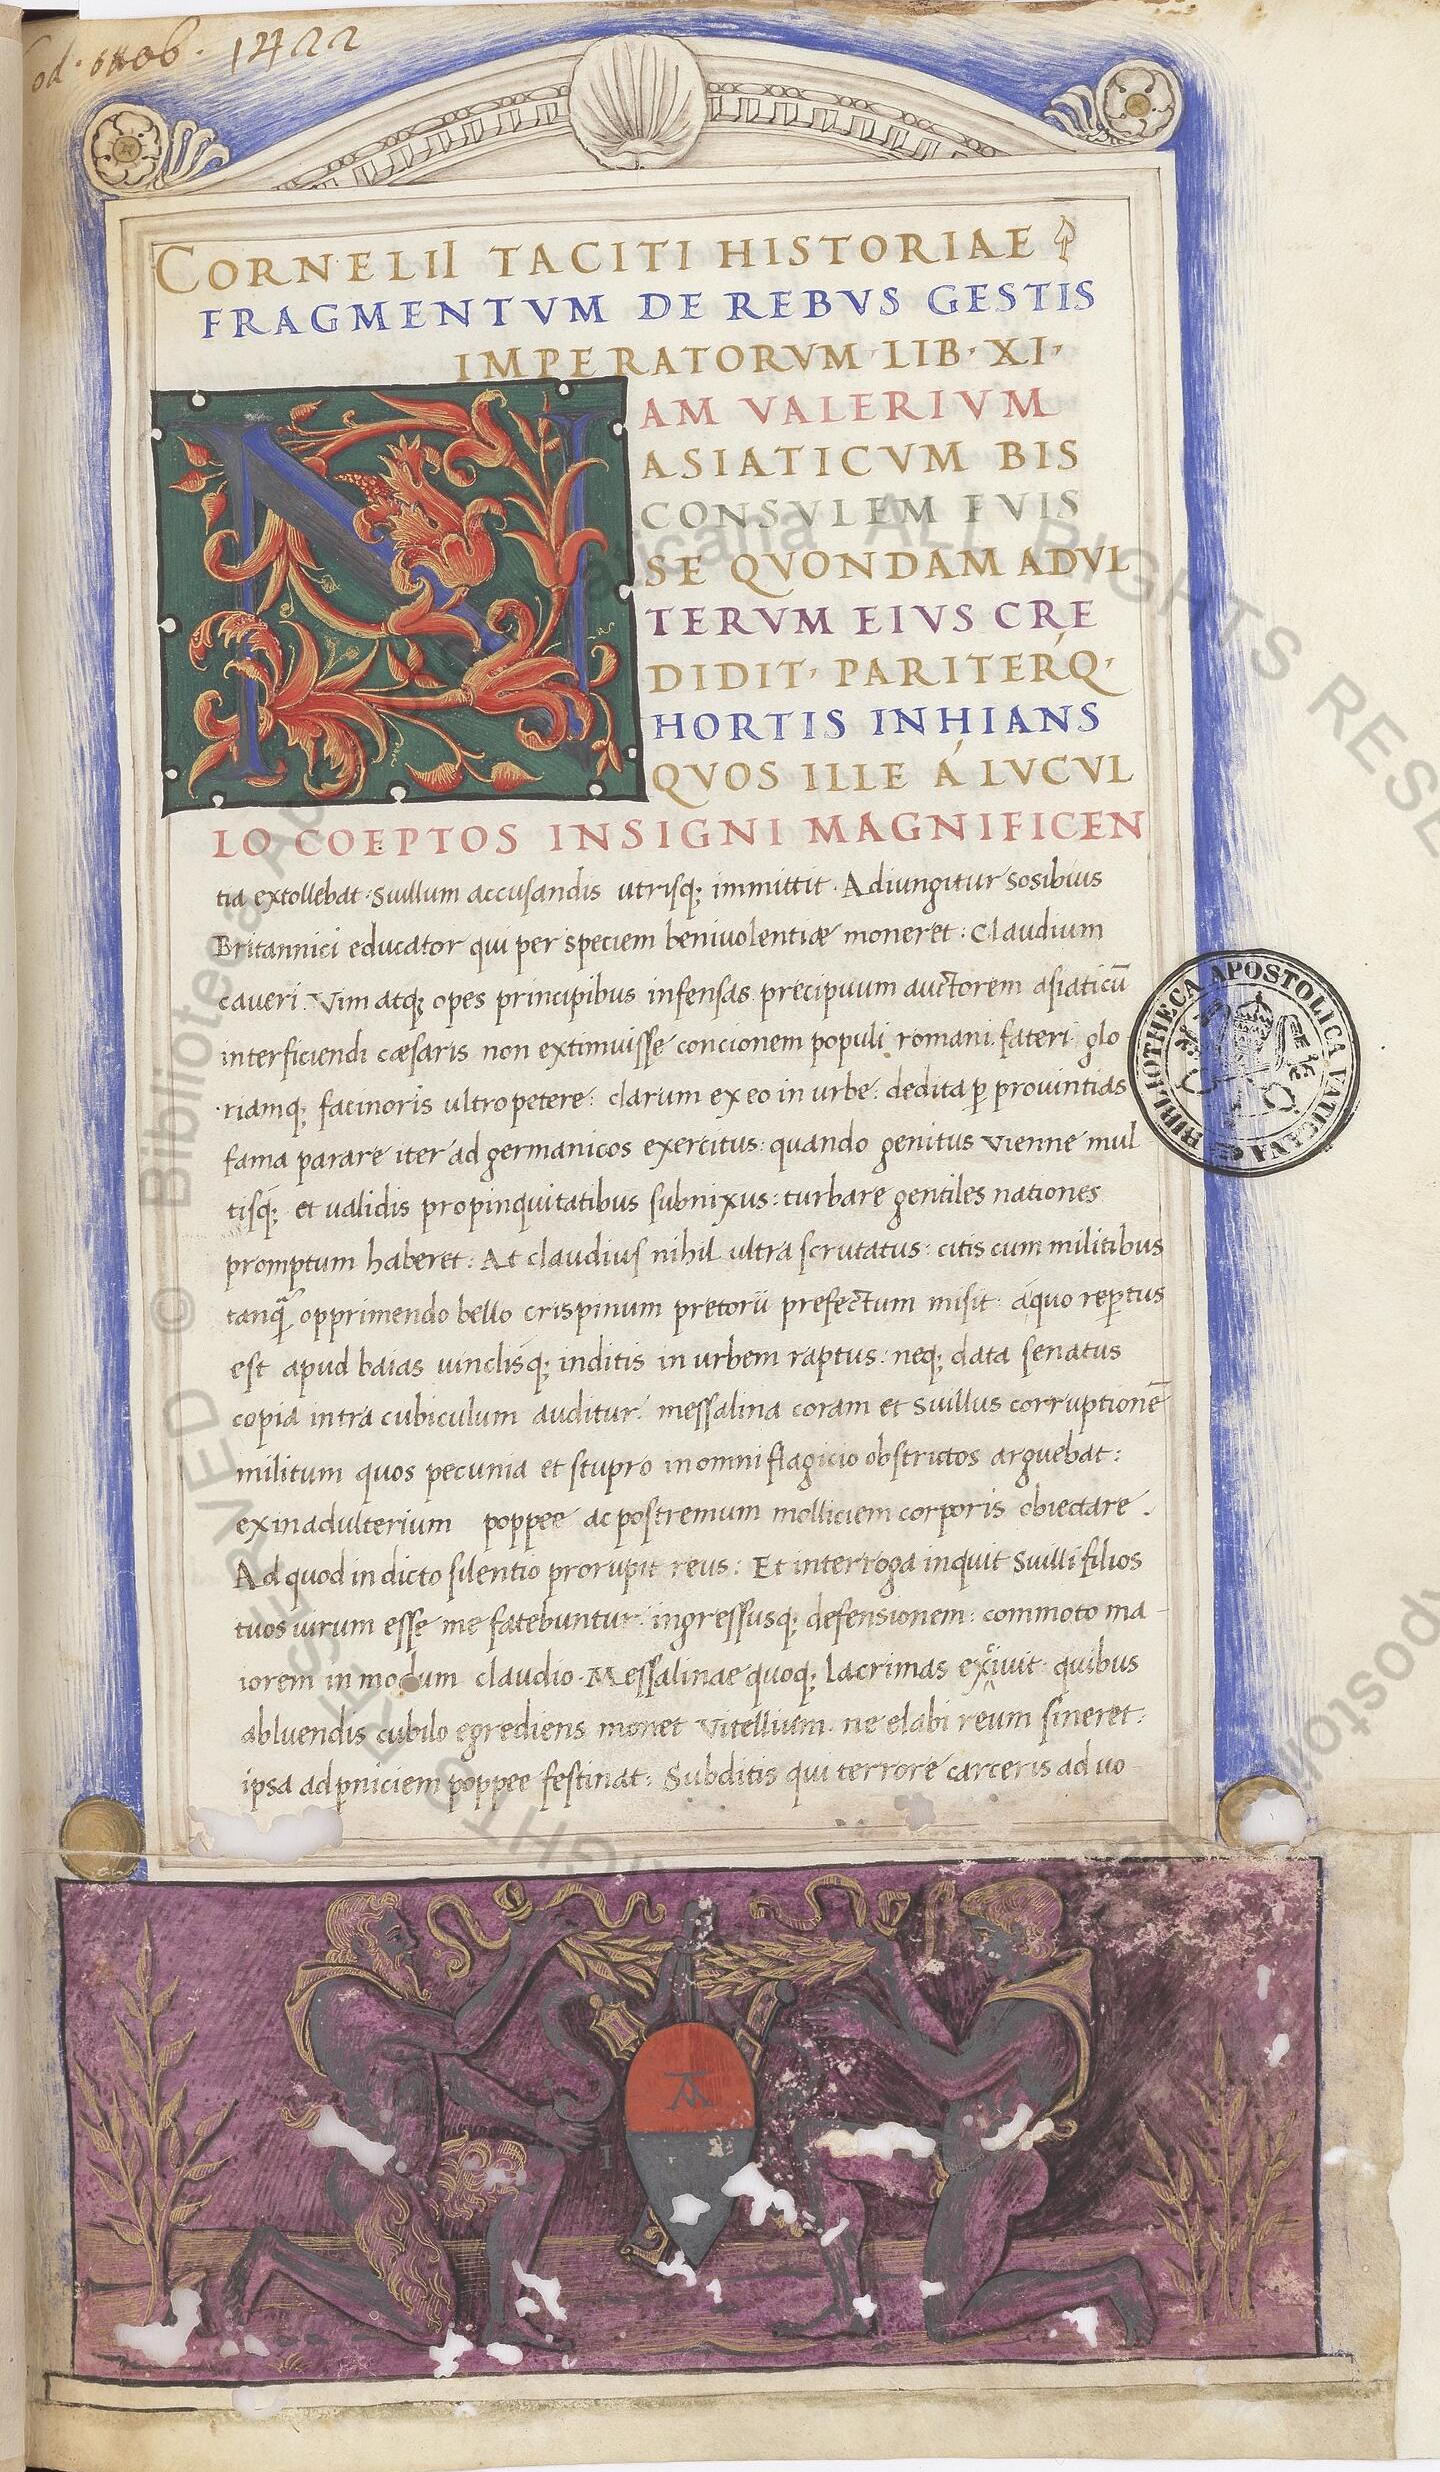 Cod. 1422
CORNELII TACITI HISTORIAE
FRAGMENTVM DE REBVS GESTIS
IMPERATORVM LIB· XI·
NAM VALERIVM
ASIATICVM BIS
CONSVLEM FVIS
SE QVONDAM ADVL
TERVM EIVS CRE
DIDIT· PARITERQ·
HORTIS INHIANS
QVOS ILLE Á LVCVL
LO COEPTOS INSIGNI MAGNIFICEN
tia extollebat· Suillum accusandis utrisq; immittit· Adiungitur sosibius
Britannici educator qui per speciem beniuolentiæ moneret: Claudium
caueri. Vim atq; opes principibus infensas precipuum auctorem asiaticū
interficiendi cæsaris non extimuisse concionem populi romani fateri glo
riamq; facinoris ultro petere: clarum ex eo in urbe: dedita ꝑ prouintias
fama parare iter ad germanicos exercitus: quando genitus vienne mul
tisq; et ualidis propinquitatibus subnixus: turbare gentiles nationes
promptum haberet: At claudius nihil ultra scrutatus: citis cum militibus
tanq̄ opprimendo bello crispinum pretorii prefectum misit· áquo reꝑtus
est apud baias uinclisq; inditis in urbem raptus: neq; data senatus
copia intra cubiculum auditur: messalina coram et Suillus corruptionē
militum quos pecunia et stupro in omni flagicio obstrictos arguebat:
exin adulterium poppee ac postremum molliciem corporis obiectare.
Ad quod in dicto silentio prorupit reus: Et interroga inquit Suilli filios
tuos uirum esse me fatebuntur: ingressusq; defensionem: commoto ma
iorem in modum claudio· Messalinae quoq; lacrimas exciuit· quibus
abluendis cubilo egrediens monet Vitellium· ne elabi reum sineret:
ipsa ad ꝑniciem poppee festinat: Subditis qui terrore carceris ad uo
BIBLIOTHECA APOSTOLICA VATICANA
1
© Biblioteca Apostolica Vaticana ALL RIGHTS RESERVED